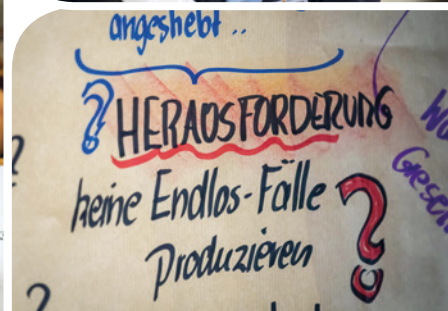 angestrebt ..
? HERAUSFORDERUNG
?
keine Endlos-Fälle ?
Produzieren
?